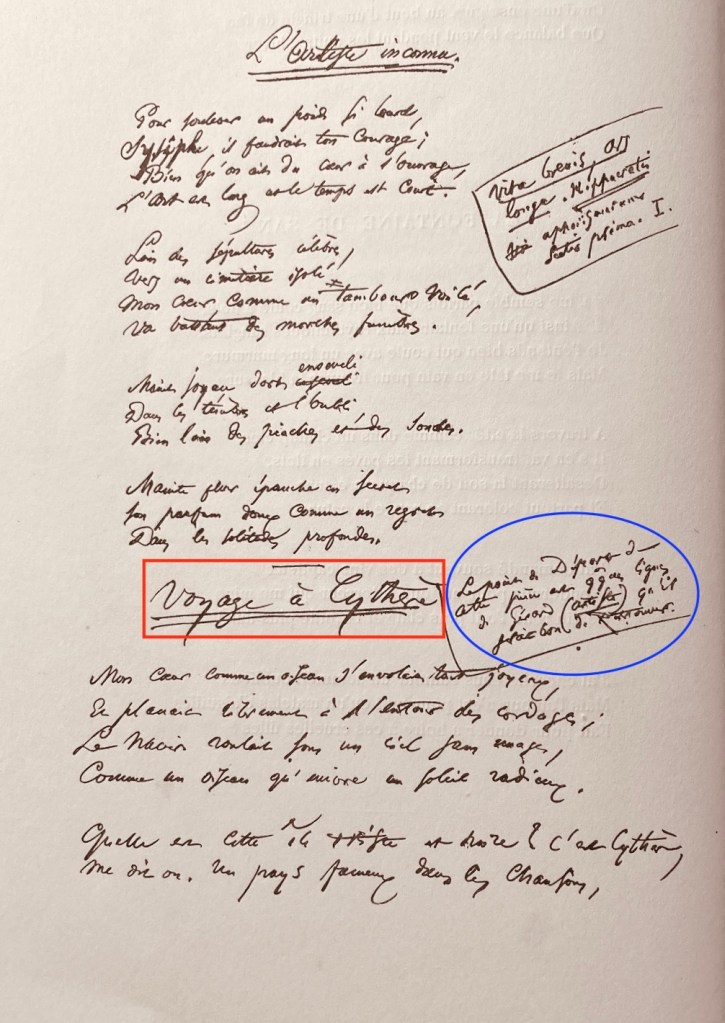 L'Artiste inconnu.
Pour soulever un poids si lourd,
Sysiphe, il faudrait ton Courage ;
Bien qu'on ait du cœur à l'ouvrage,
L'Art est long et le temps est Court.
Vita brevis, ars
longa. Hippocratis
aphorismorum
sectio prima. I.
Loin des sépultures célèbres,
Vers un cimetière isolé,
Mon Cœur Comme un tambour voilé,
Va battant des marches funèbres.
Maint joyau dort enseveli
Dans les ténèbres et l'oubli
Bien loin des pioches et des sondes.
Mainte fleur épanche en secret
Son parfum doux Comme un regret
Dans les solitudes profondes.
Voyage à Cythère
Le point de Départ de
cette pièce est qques lignes
de Gérard (artiste) qu'il
serait bon de retrouver.
Mon Cœur comme un oiseau s'envolait tout joyeux,
Et planait librement à l'entour des cordages ;
Le Navire roulait sous un ciel sans nuages,
Comme un oiseau qu'enivre un soleil radieux.
Quelle est cette île triste et noire ? C'est Cythère,
me dit on. Un pays fameux dans les Chansons,